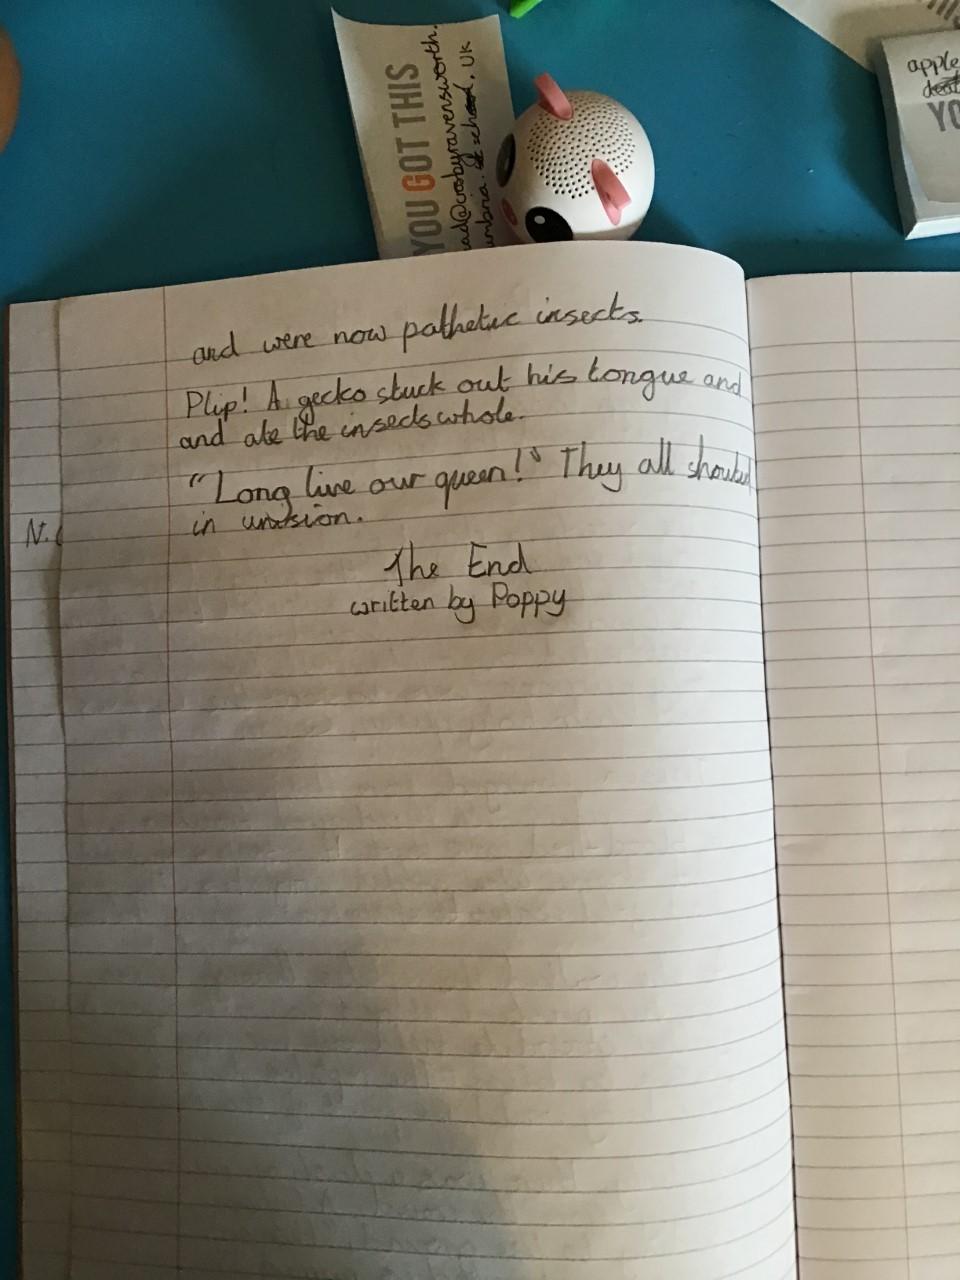 YOU GOT THIS
ad@crosbyravensworth.
umbria. sch, UK
apple
YO
and were now pathetic insects.
Plip! A gecko stuck out his tongue and
and ate the insects whole.
"Long live our queen!" They all shouted
in unision.
N.
The End
written by Poppy